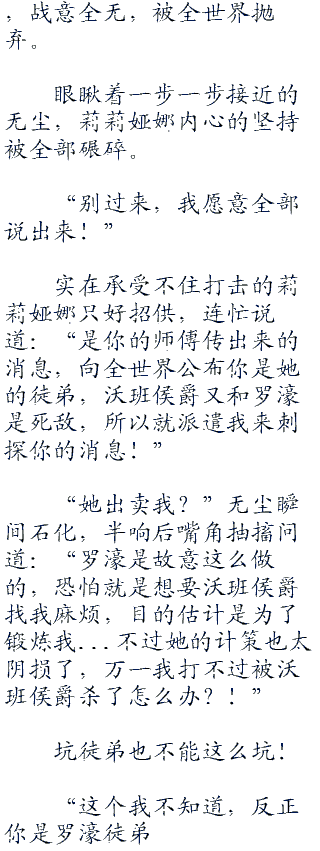 ，战意全无，被全世界抛
弃。
眼瞅着一步一步接近的
无尘，莉莉娅娜内心的坚持
被全部碾碎。
“别过来，我愿意全部
说出来！”
实在承受不住打击的莉
莉娅娜只好招供，连忙说
道：“是你的师傅传出来的
消息，向全世界公布你是她
的徒弟，沃班侯爵又和罗濠
是死敌，所以就派遣我来刺
探你的消息！”
“她出卖我？”无尘瞬
间石化，半响后嘴角抽搐问
道：“罗濠是故意这么做
的，恐怕就是想要沃班侯爵
找我麻烦，目的估计是为了
锻炼我...不过她的计策也太
阴损了，万一我打不过被沃
班侯爵杀了怎么办？！”
坑徒弟也不能这么坑！
“这个我不知道，反正
你是罗濠徒弟